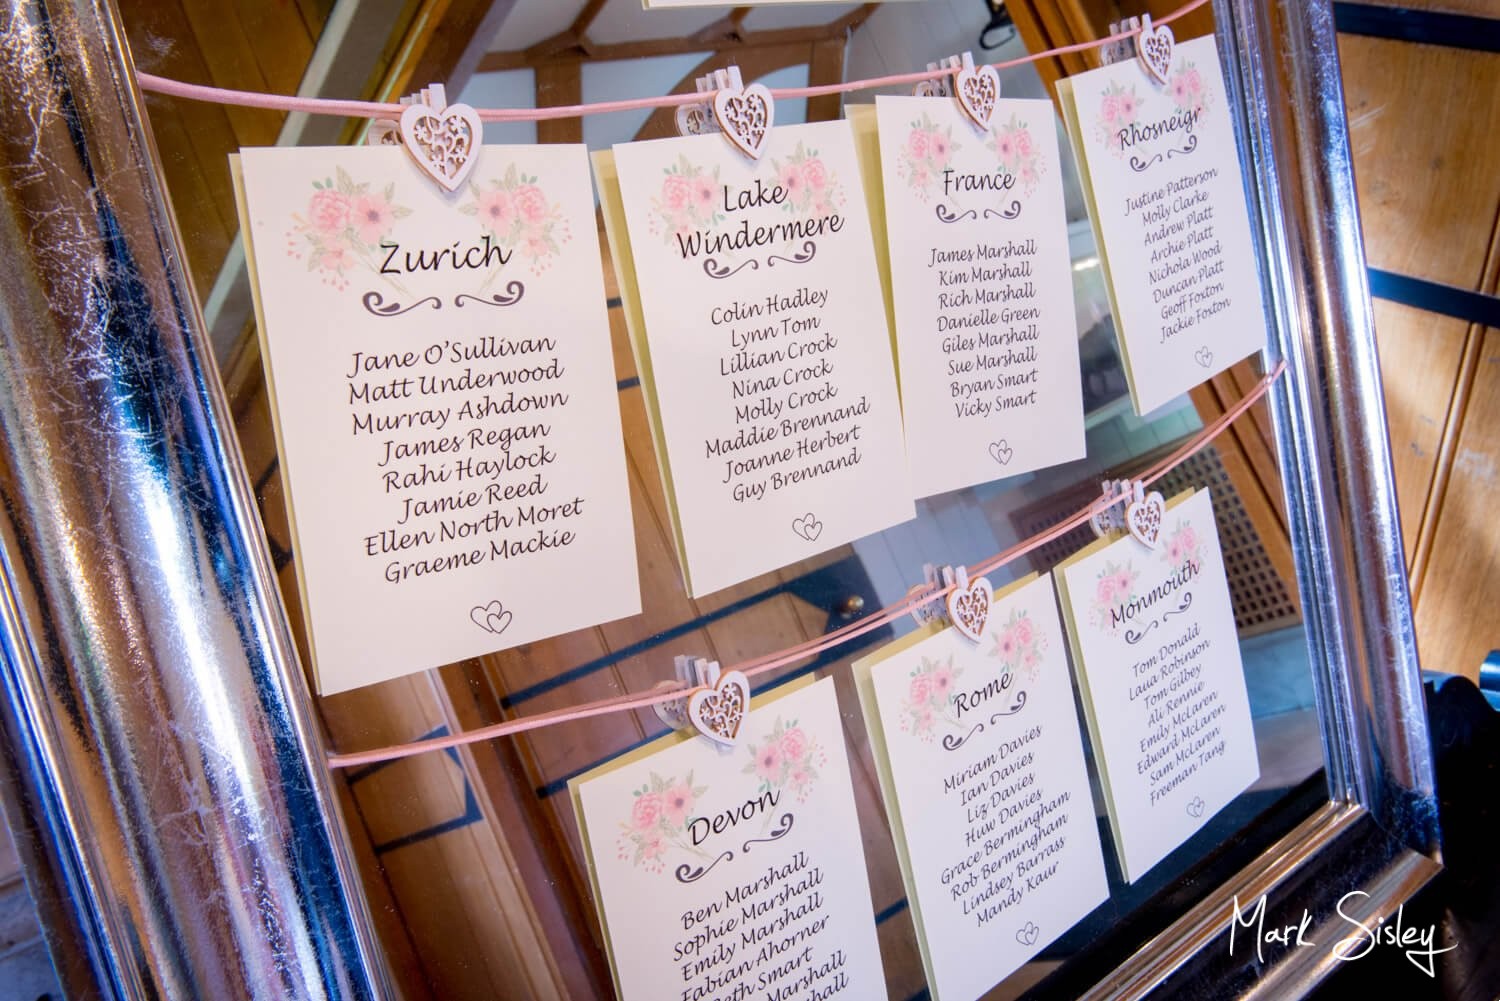 Zurich
Jane O'Sullivan
Matt Underwood
Murray Ashdown
James Regan
Rahi Haylock
Jamie Reed
Ellen North Moret
Graeme Mackie
Lake
Windermere
Colin Hadley
Lynn Tom
Lillian Crock
Nina Crock
Molly Crock
Maddie Brennand
Joanne Herbert
Guy Brennand
France
James Marshall
Kim Marshall
Rich Marshall
Danielle Green
Giles Marshall
Sue Marshall
Bryan Smart
Vicky Smart
Rhosneigr
Justine Patterson
Molly Clarke
Andrew Platt
Archie Platt
Nichola Wood
Duncan Platt
Geoff Foxton
Jackie Foxton
Devon
Ben Marshall
Sophie Marshall
Emily Marshall
Fabian Ahorner
Smart
Marshall
Rome
Miriam Davies
Ian Davies
Liz Davies
Huw Davies
Grace Bermingham
Rob Bermingham
Lindsey Barrass
Mandy Kaur
Monmouth
Tom Donald
Laua Robinson
Tom Gilbey
Ali Rennie
Emily McLaren
Edward McLaren
Sam McLaren
Freeman Tang
Mark Sisley